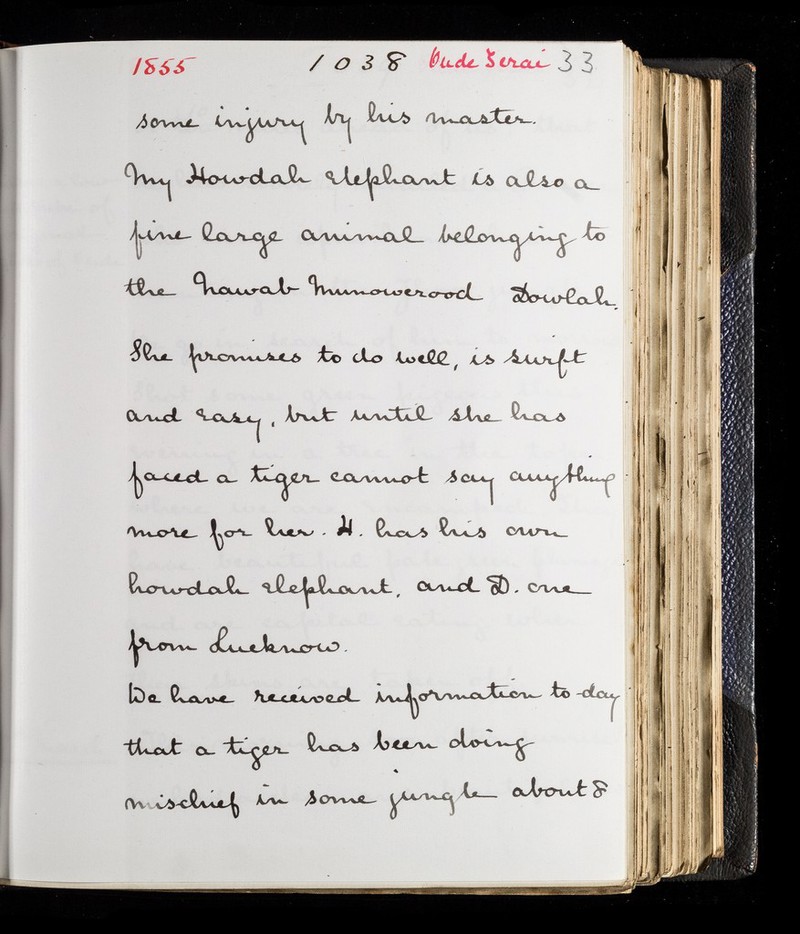 1855 1038 Oude Terai 33
some injury by his master.
My Howdah elephant is also a
fine large animal belonging to
the Nawab Munowerood Dowlah.
She promises to do well, is swift
and easy, but until she has
faced a tiger cannot say anything
more for her. H. has his own
howdah elephant, and D. one
from Lucknow.
We have received information to-day
that a tiger has been doing
mischief in some jungle about 8